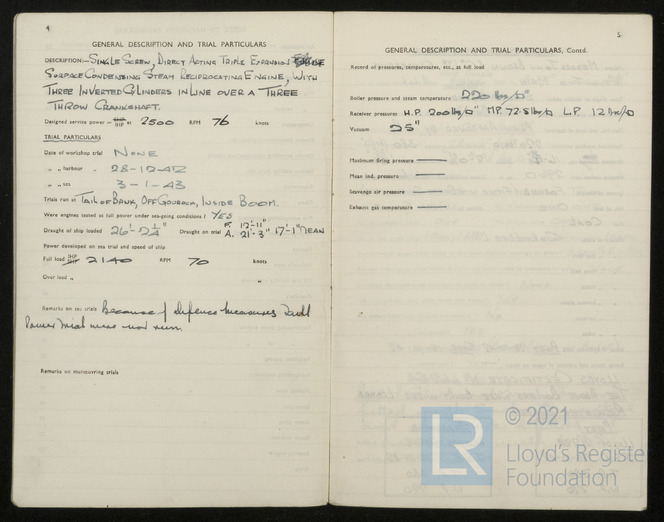 4
GENERAL DESCRIPTION AND TRIAL PARTICULARS
DESCRIPTION:- SINGLE SCREW, DIRECT ACTING TRIPLE EXPANSION
SURFACE CONDENSING STEAM RECIPROCATING ENGINE, WITH
THREE INVERTED CYLINDERS IN LINE OVER A THREE
THROW CRANKSHAFT.
Designed service power — IHP at 2500 RPM 76 knots
TRIAL PARTICULARS
Date of workshop trial NONE
„ „ harbour „ 28-12-42
„ „ sea 3-1-43
Trials run at TAIL OF BANK, OFF GOUROCK, INSIDE BOOM.
Were engines tested at full power under sea-going conditions? YES
Draught of ship loaded 26'-2¼" Draught on trial F. 12'-11" A. 21'-3" 17'-1" MEAN
Power developed on sea trial and speed of ship
Full load 2140 RPM 70 knots
Over load „ „
Remarks on sea trials Because of defence measures full
Power trial were not run.
Remarks on manœuvring trials
5
GENERAL DESCRIPTION AND TRIAL PARTICULARS, Contd.
Record of pressures, temperatures, etc., at full load
Boiler pressure and steam temperature 220 lbs/□"
Receiver pressures H.P. 200 lbs/□" M.P. 72.5 lbs/□ L.P. 12 lbs/□
Vacuum 25"
Maximum firing pressure
Mean ind. pressure
Scavenge air pressure
Exhaust gas temperature
© 2021
LR
Lloyd's Register
Foundation